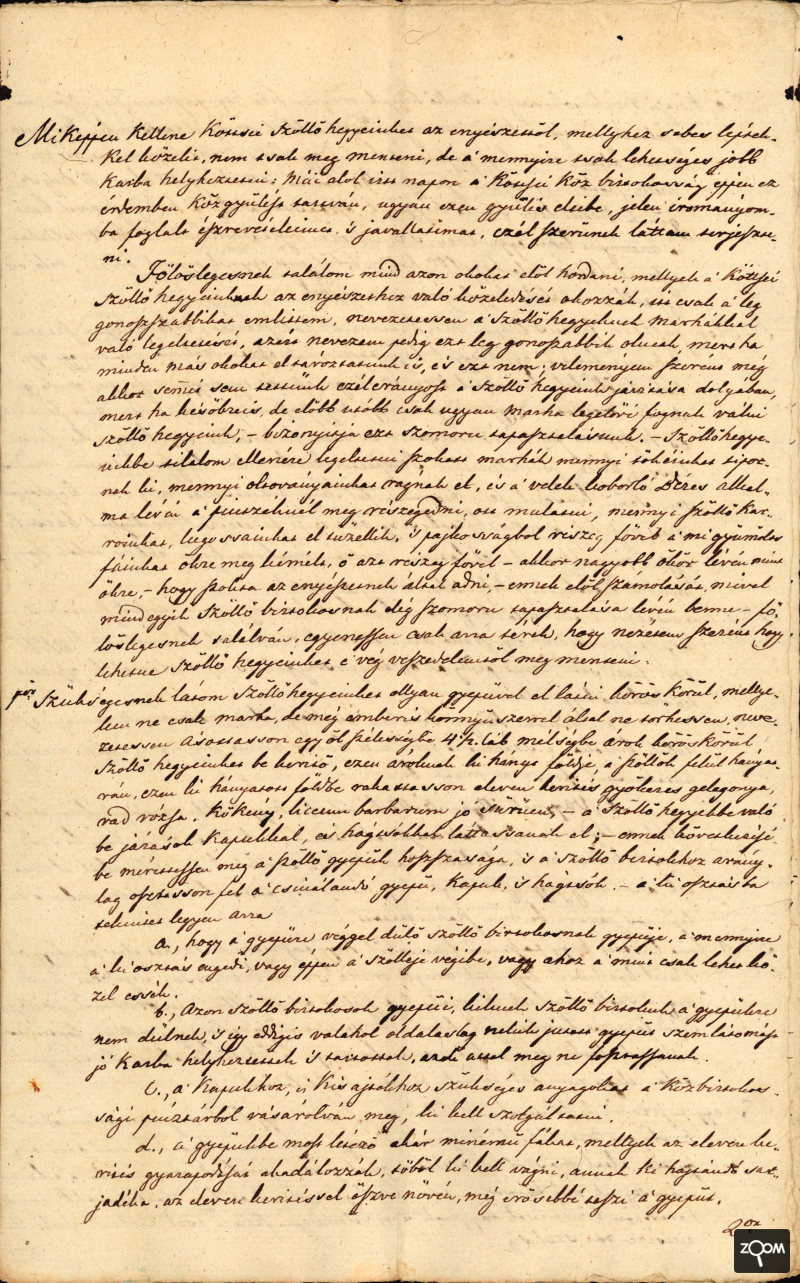 Mi keppen kellene Köttsei Szöllö hegyeinket az enyészettöl, mellyhez sebes lépések-
kel közelit, nem tsak meg menteni, de á mennyire tsak lehettséges jobb
karba helyheztetni; Mái alol irtt napon a Köttsei Köz birtokosság éppen ez
érdemben Közgyülést tartván, ugyan ezen gyülés eleibe, jelen irományom-
ba foglalt észrevételeimet, 's javallatimat, czél szerünek láttam terjeszte-
ni.
Fölöslegesnek találom mind azon okokat elöl hordani, mellyek á Köttsei
Szöllö hegyeinknek az enyészethez való közeledését okozzák, itt csak á leg
gonoszszabbikat emlitem, nevezetessen á Szöllö hegyeknek Marhákkal
való legeltetését, azért nevezem pedig ezt leg gonoszabbik oknak, mert ha
minden más okokat el távoztatunk is, és ezt nem; velemenyem szerént még
akkor semit sem tettünk czélerányost á Szöllö hegyeink javitása dolgában,
mert ha késöbre is, de elöbb utóbb csak ugyan marha legelöri fognak válni
Szöllö hegyeink, - bizonyitja ezt szomoru tapasztalásunk. - Szöllö hegye-
inkbe tilalom ellenére legeltetni szokott marhák mennyi tökéinket tipor-
nak ki, mennyi oltoványainkat rágnak el, és á velek kóborló Béres alkal-
ma lévén á pintzéknél meg részegedni, ott mulatni, mennyi szöllö kar-
roinkat, lugossainkat el tüzellik, 's pajkosságbol részeg fövel á mi gyümölts
fáinkat ökre meg kéméli, ö azt részeg fövel - akkor nagyobb ökör lévén mint
ökre, - hogy szokta az enyészetnek által adni, - ennek elöl számolását, mivel
mind egyik Szöllö birtokosnak elég szomoru tapasztalása lévén benne - fö-
löslegesnek talalván, egyenessen csak arra térek, hogy nézetem szerént hogy
lehetne Szöllö hegyeinket é vég veszedelemtöl meg menteni.
Szükségesnek látom Szöllö hegyeinket ollyan gyepüvel el látni körös körül, mellye-
ken ne csak marha, de még ember is könnyü szerrel által ne törhessen, neve-
zetessen ásattasson egy öl szélességbe 4 1/2 láb mélségbe árok körös körül
Szöllö hegyeinket be keritö, ezen ároknak ki hányt földje, á szöllök felül hányat-
ván, ezen ki hányatott földbe rakattasson eleven kerités gyökeres gelegonya,
vad rózsa, Kökény, licium barbarum jó sürüen, - a Szöllö hegyekbe való
be járások kapukkal, és hágcsókkal láttassanak el; - ennek következésé-
be mérettessen meg á szöllö gyepük hoszszasága, 's á Szöllö birtokhoz arány-
lag osztasson fel á csinálandó gyepü, kapuk, 's hágtsók. - á ki osztásba
tekintet legyen arra
a., hogy á gyepüre véggel dülö Szöllö birtokosnak gyepüje, á mennyire
á ki osztás engedi, vagy éppen á szöllöje végibe, vagy ahoz á mint csak lehet kö-
zel essék.
b., Azon Szöllö birtokosok gyepüi, kiknek Szöllö birtokuk á gyepükre
nem dülnek, 's igy eddig is valahol oldalaslag nekik jutott gyepüt szemlátomást
jó karba helyheztettek 's tartottak, azok attol meg ne fosztassanak.
c., á Kapukhoz, 's Kis ajtókhoz szükséges anyagokat á Közbirtokos-
sági pénztárbol vásárolván meg, ki kell szolgáltatni.
d., á gyepükbe most létezö akár minémü fákat, mellyek az eleven ke-
rités gyarapodását akadálozzák, töböl ki kell vágni, annak ki hajtandó sar-
jadéka, az eleven keritéssel öszve növén, még erösebbé teszi á gyepüt.
2or
ZOOM